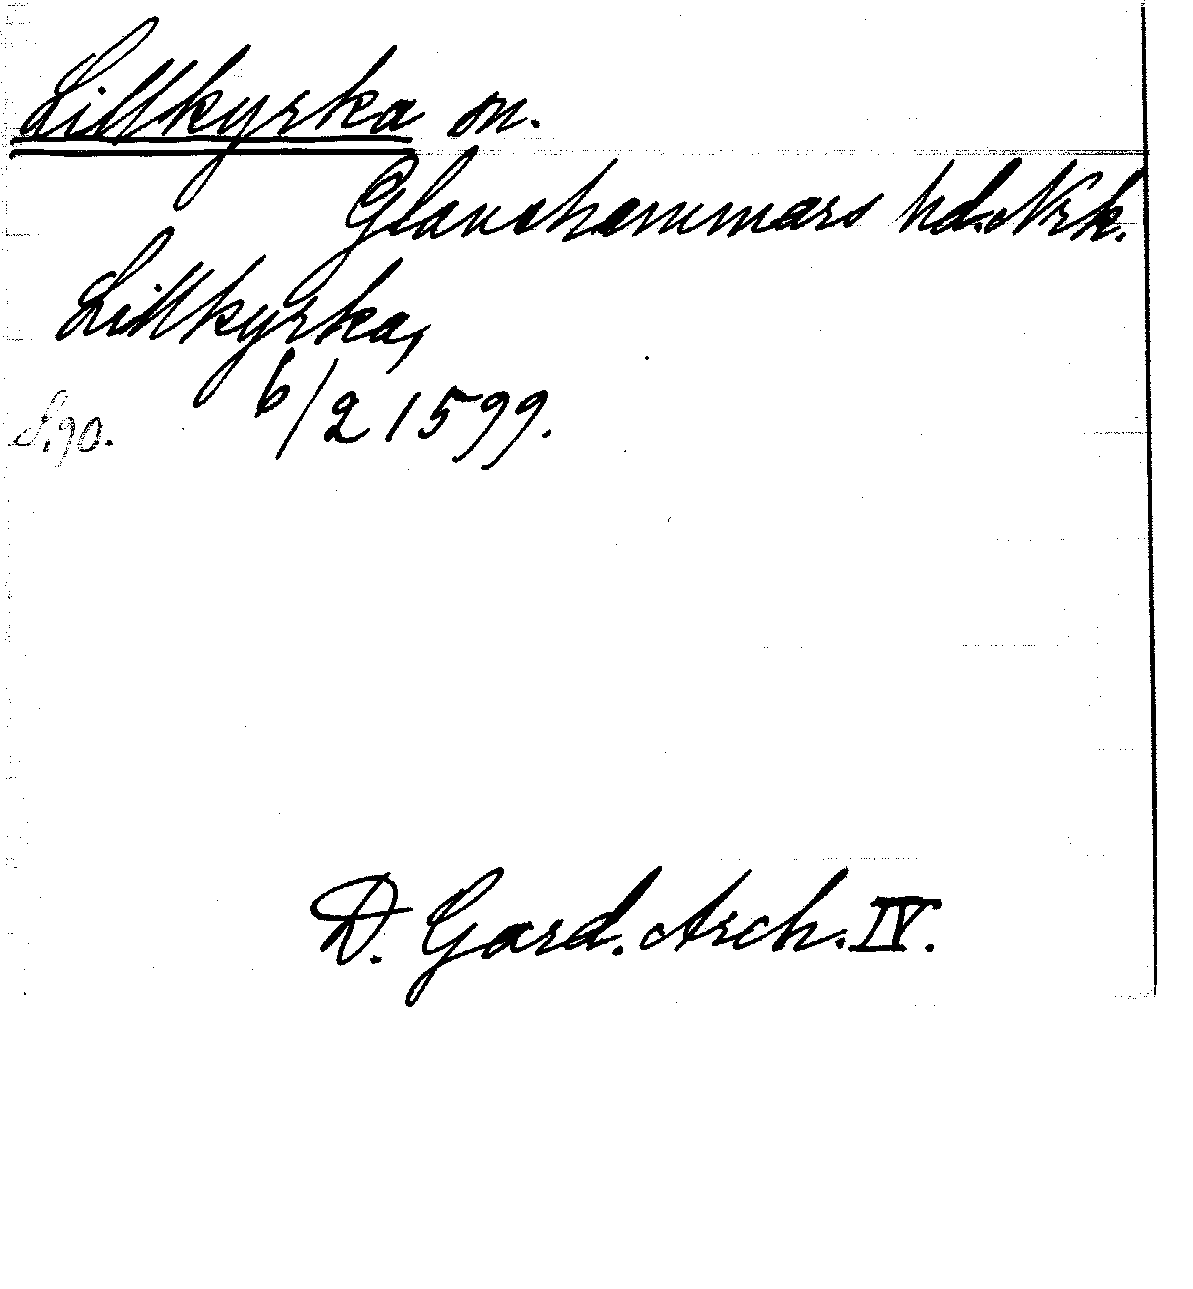 Lillkyrka sn.
Glanshammars hd. Nrk.
Lillkyrka,
6/2 1599.
S. 90.
D. Gard. Arch. IV.